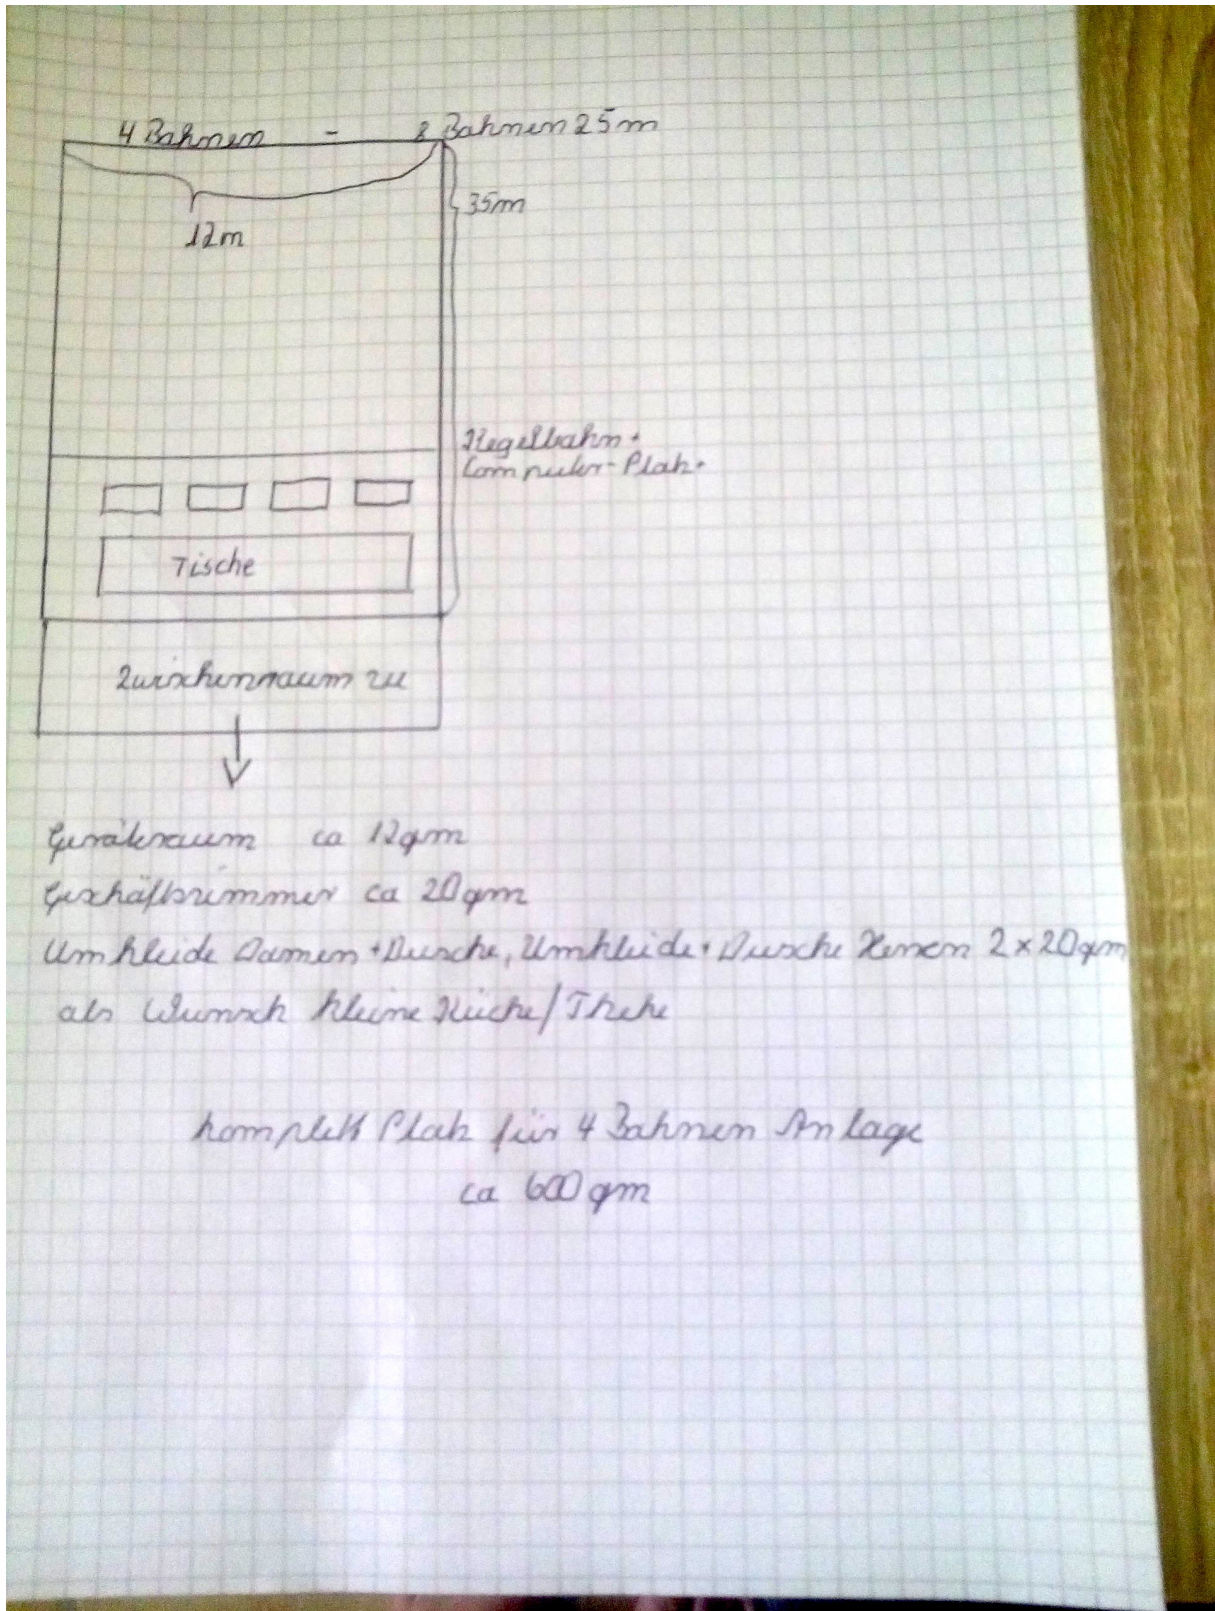 4 Bahnen - 8 Bahnen 25m
12m
35m
Kegelbahn +
Computer-Platz.
Tische
Zwischenraum zu
Geräteraum ca 12qm
Geschäftszimmer ca 20qm
Umkleide Damen + Dusche, Umkleide + Dusche Herren 2x20qm
als Wunsch kleine Küche/Theke
komplett Platz für 4 Bahnen Anlage
ca 600 qm